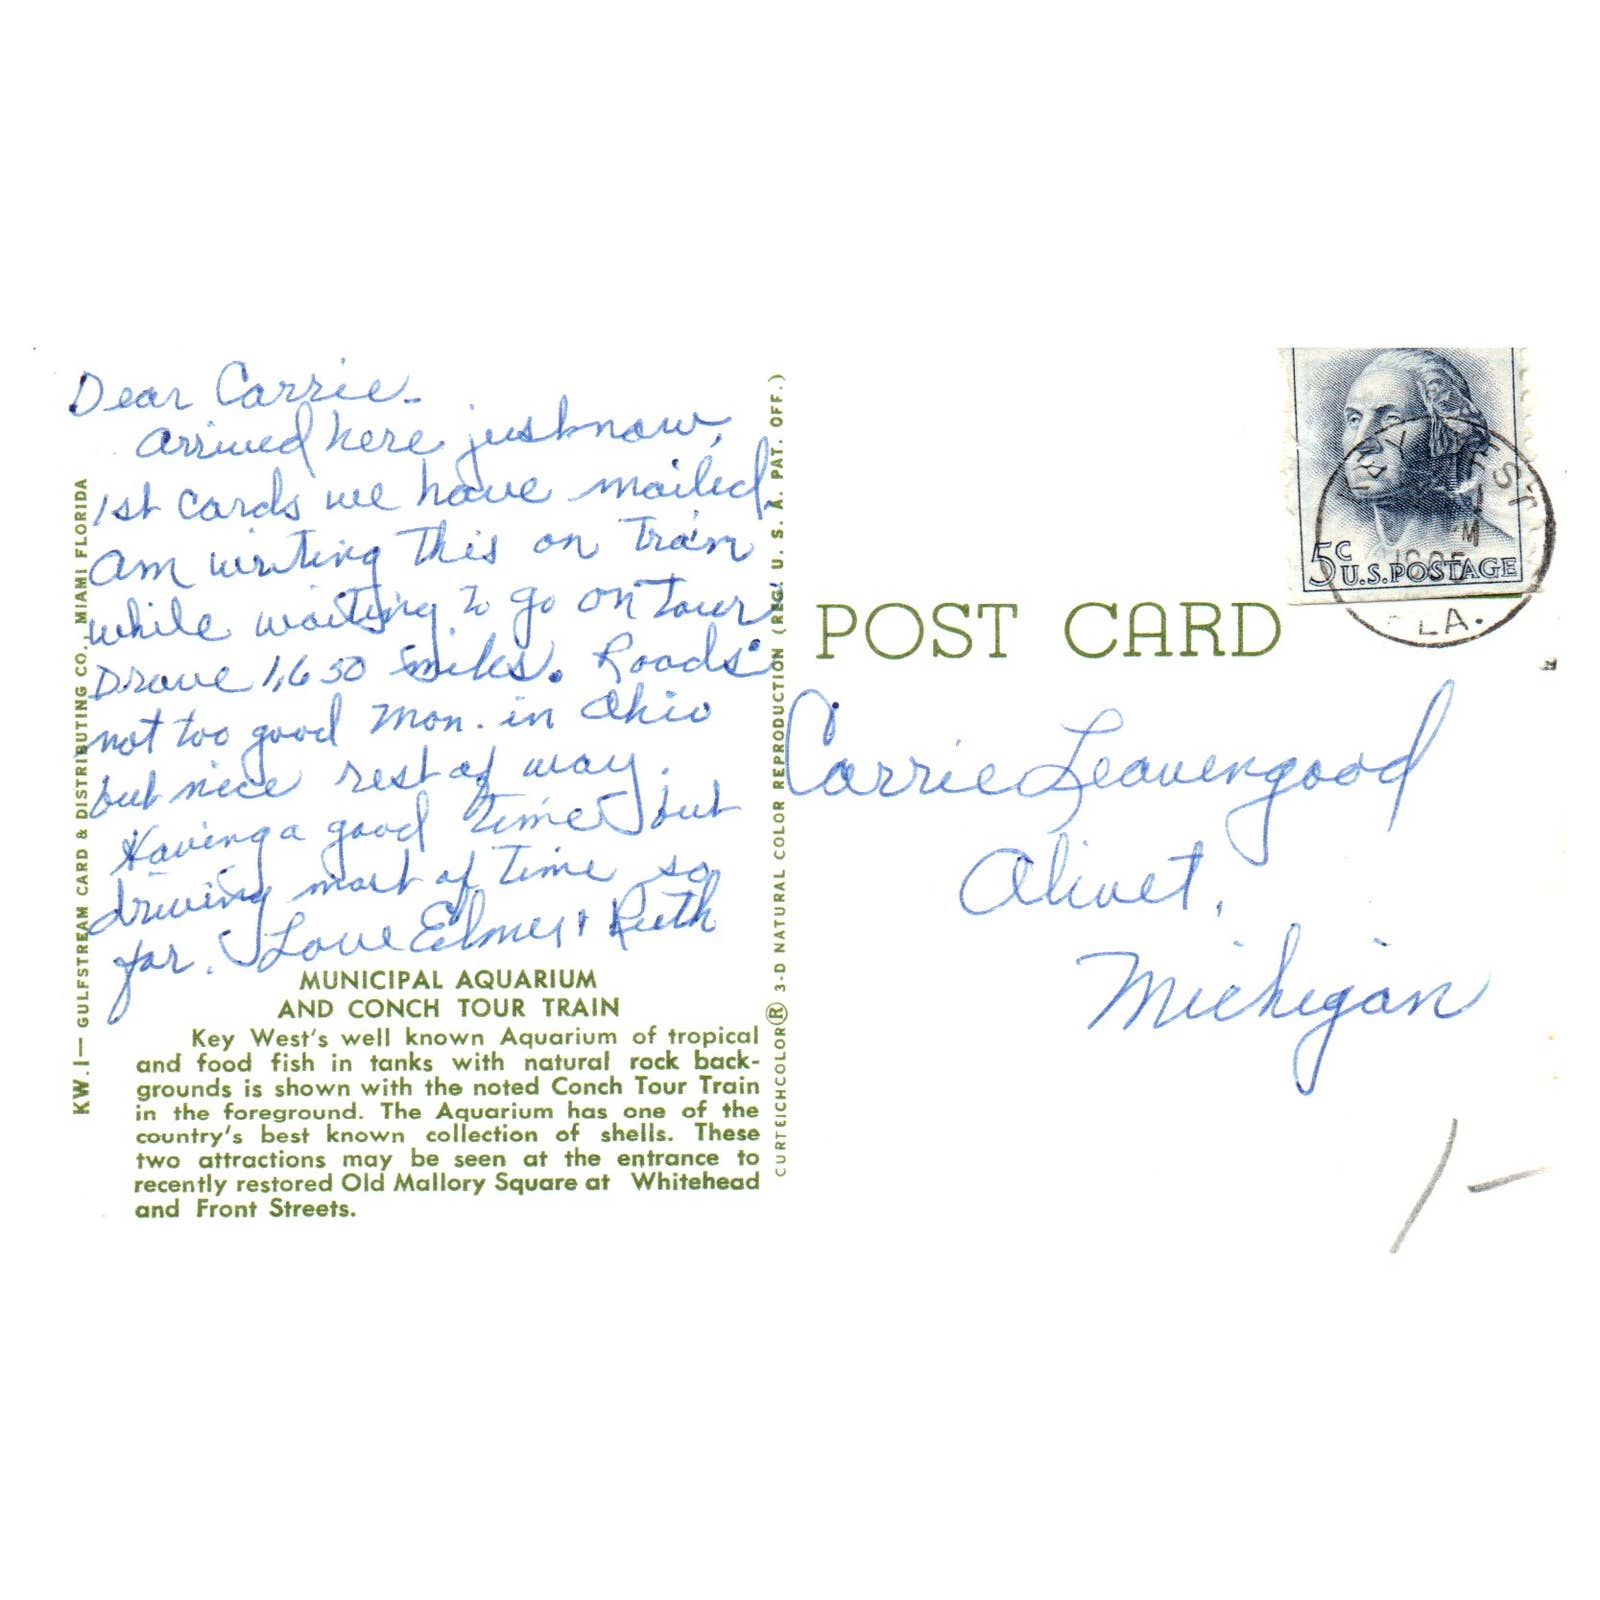 Dear Carrie..
Arrived here just now,
1st cards we have mailed.
Am writing this on Train
while waiting to go on tour
Drove 1,650 miles. Roads
not too good Mon. in Ohio
but nice rest of way.
Having a good time but
driving most of time so
far. Love Elmer + Ruth
MUNICIPAL AQUARIUM
AND CONCH TOUR TRAIN
Key West's well known Aquarium of tropical
and food fish in tanks with natural rock back-
grounds is shown with the noted Conch Tour Train
in the foreground. The Aquarium has one of the
country's best known collection of shells. These
two attractions may be seen at the entrance to
recently restored Old Mallory Square at Whitehead
and Front Streets.
KW.1— GULFSTREAM CARD & DISTRIBUTING CO., MIAMI FLORIDA
CURTEICHCOLOR® 3-D NATURAL COLOR REPRODUCTION (REG. U. S. A. PAT. OFF.)
POST CARD
5c
U.S. POSTAGE
WEST
LA.
Carrie Leavengood
Olivet,
Michigan
/-